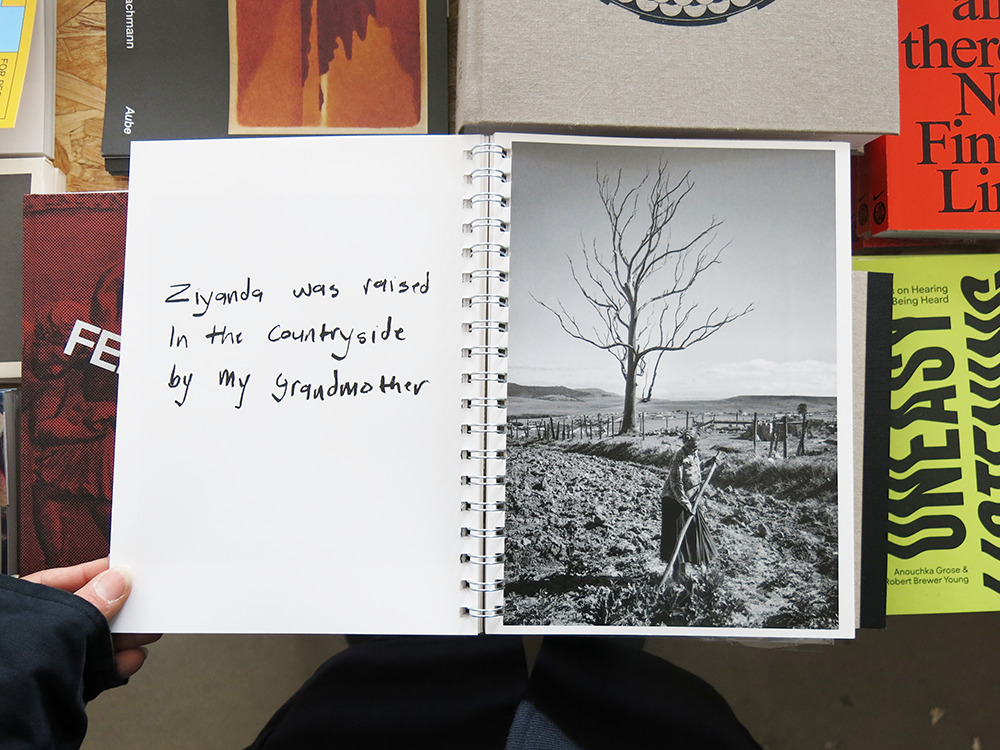 achmann
Aube
FOR
an
there
No
Fin
Li
FE
Ziyanda was raised
In the countryside
by my grandmother
on Hearing
Being Heard
UNEASY
Anouchka Grose &
Robert Brewer Young